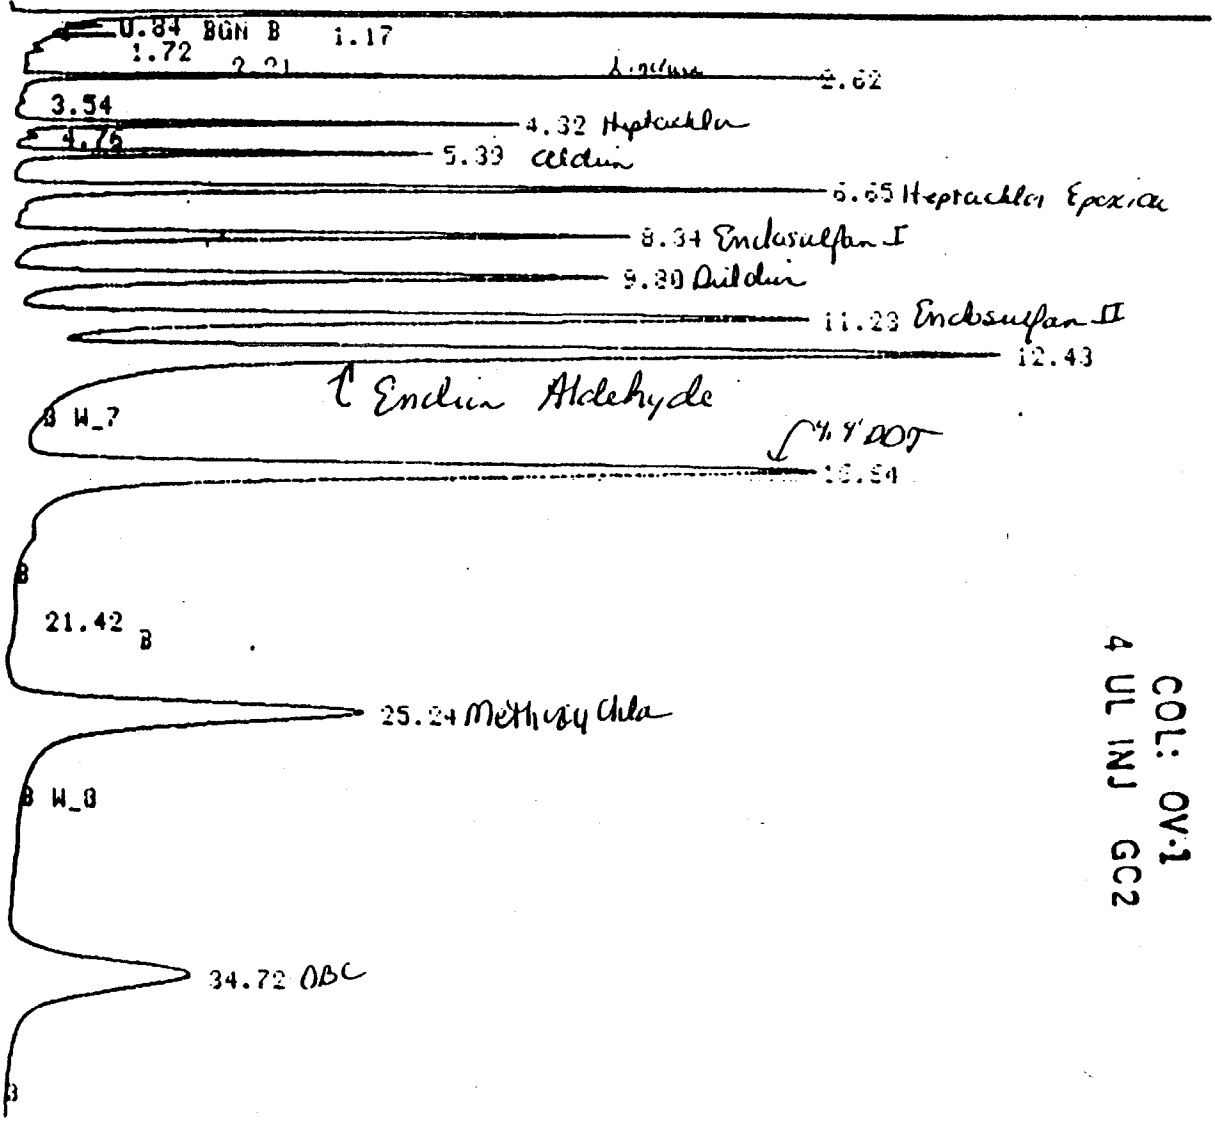 0.84 BGN B 1.17
1.72
2.21 2.62
3.54
4.32 Heptachlor
4.76
5.39 Aldrin
6.65 Heptachlor Epoxide
8.34 Endosulfan I
9.80 Dieldrin
11.23 Endosulfan II
12.43
↑ Endrin Aldehyde
B W_7
4,4' DDT
B
21.42 B
25.24 Methoxychlor
B W_8
34.72 DBC
B
COL: OV-1
4 UL INJ GC2